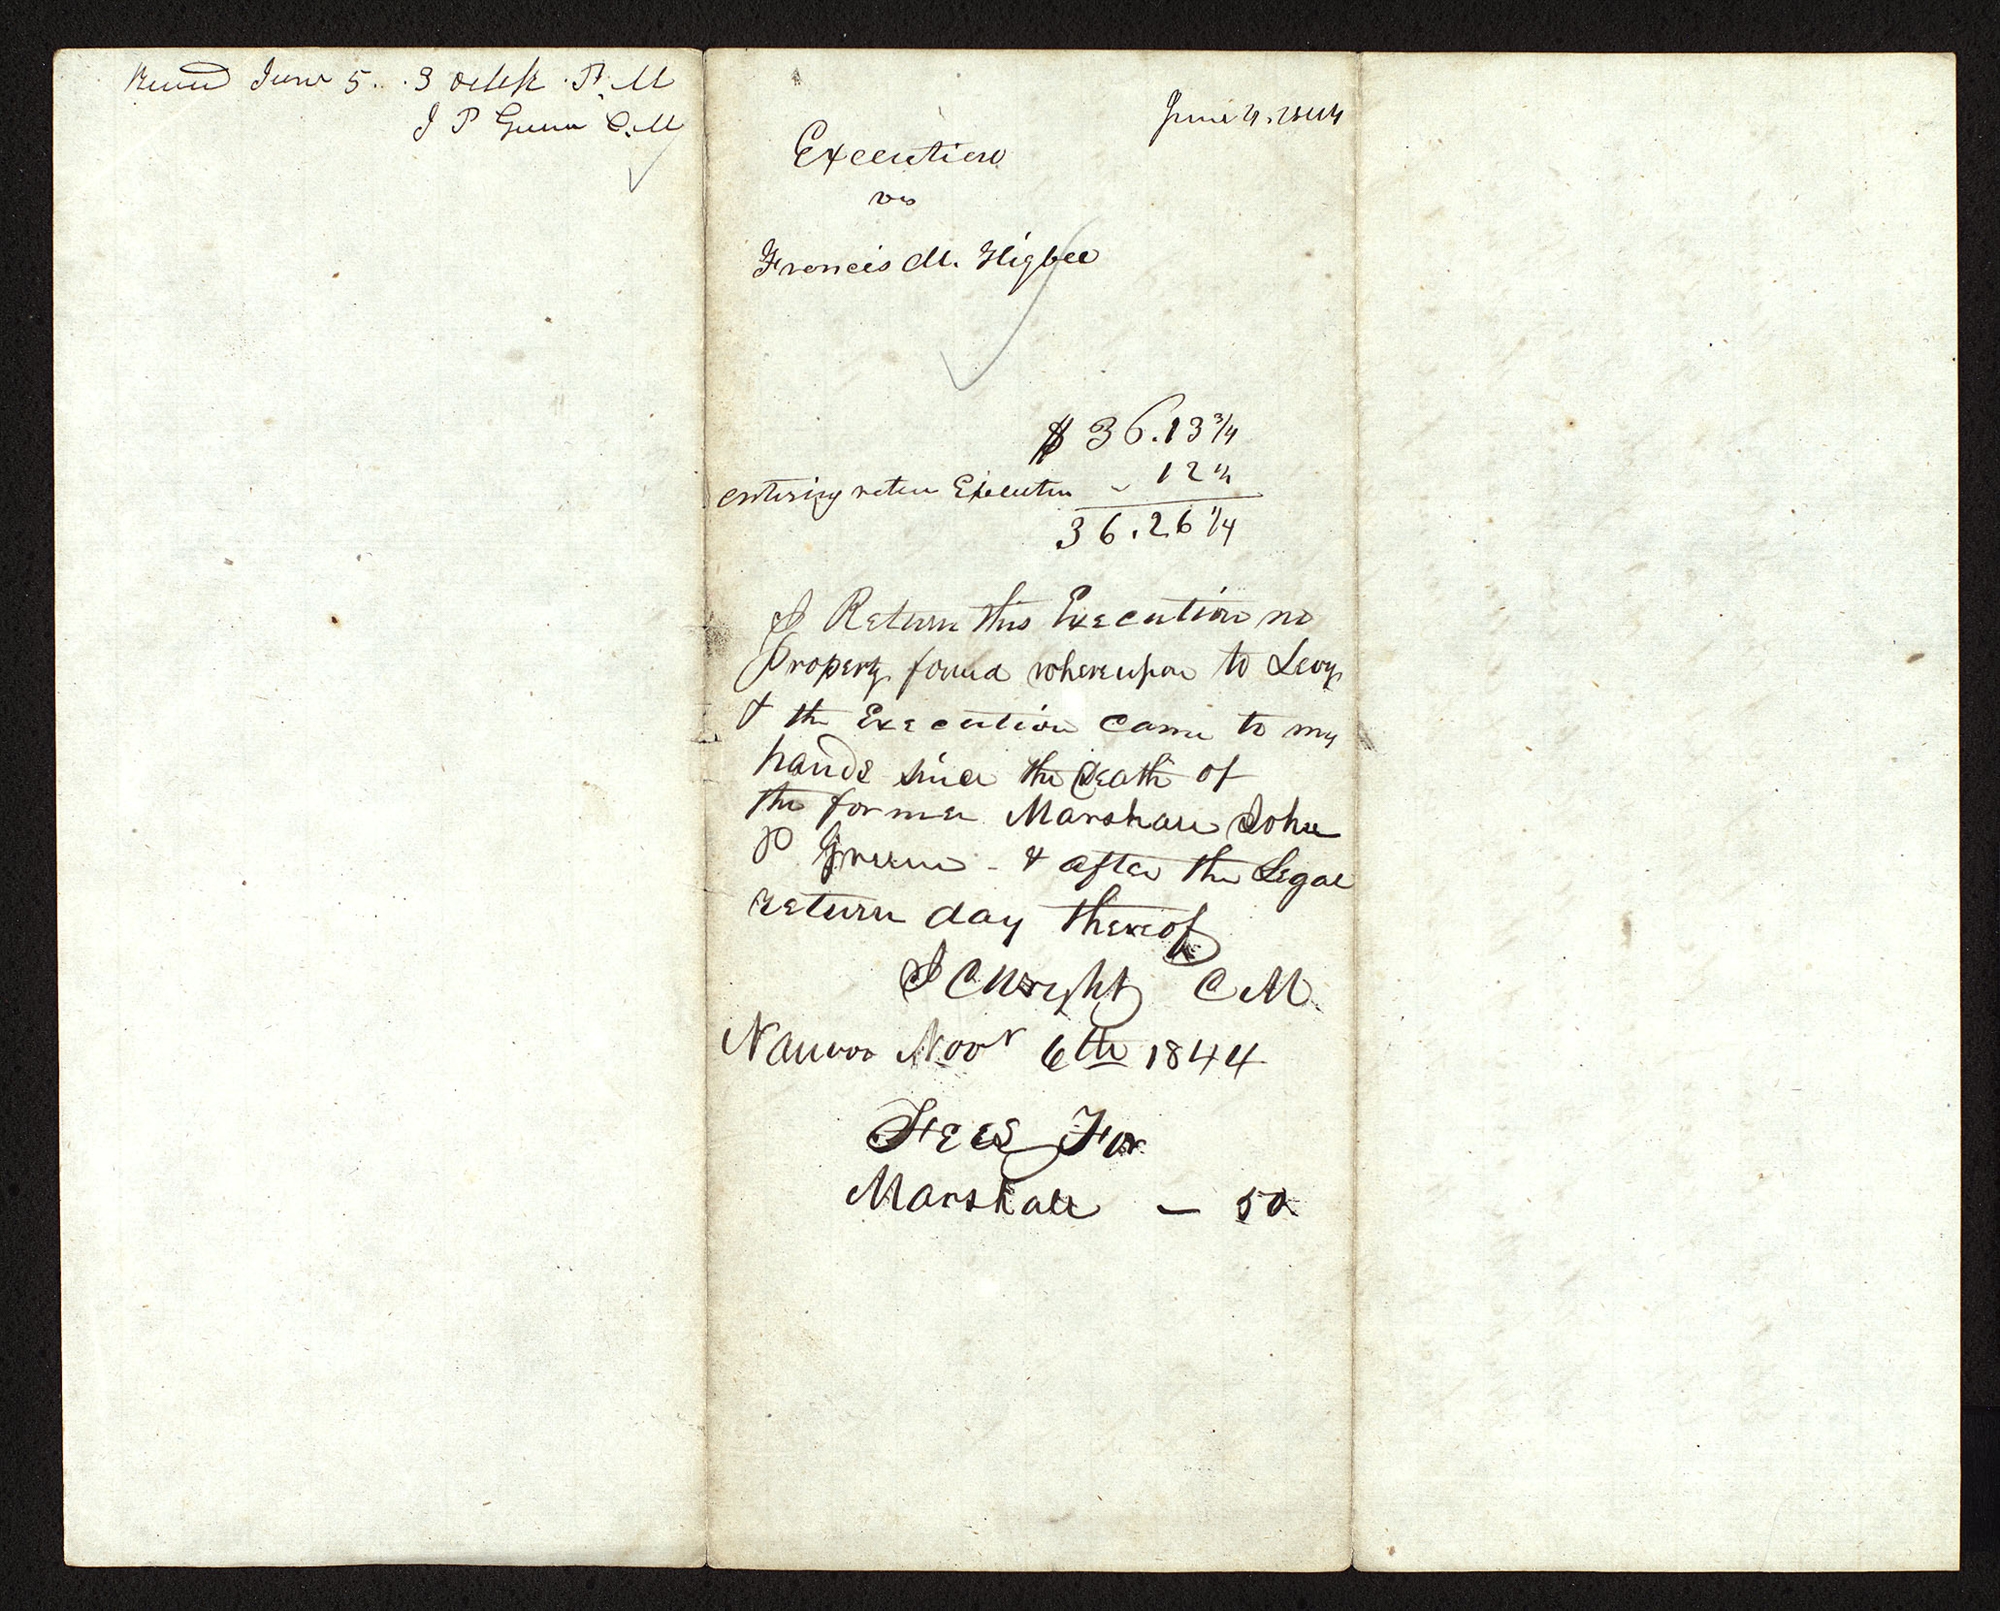 Recvd June 5.. 3 oclck P.M
J P Green C.M
June 4. 1844
Execution
vs
Francis M. Higbee
$ 36.13 3/4
entering retun Executin - 12 1/2
36.26 1/4
I Return this Execution no
Property found whereupon to Levy
& the Execution came to my
hands since the Death of
the former Marshall John
P Greene - & after the Legal
return day thereof
J C Wright C M.
Nauvoo Novr 6th 1844
Fees For
Marshall — 50